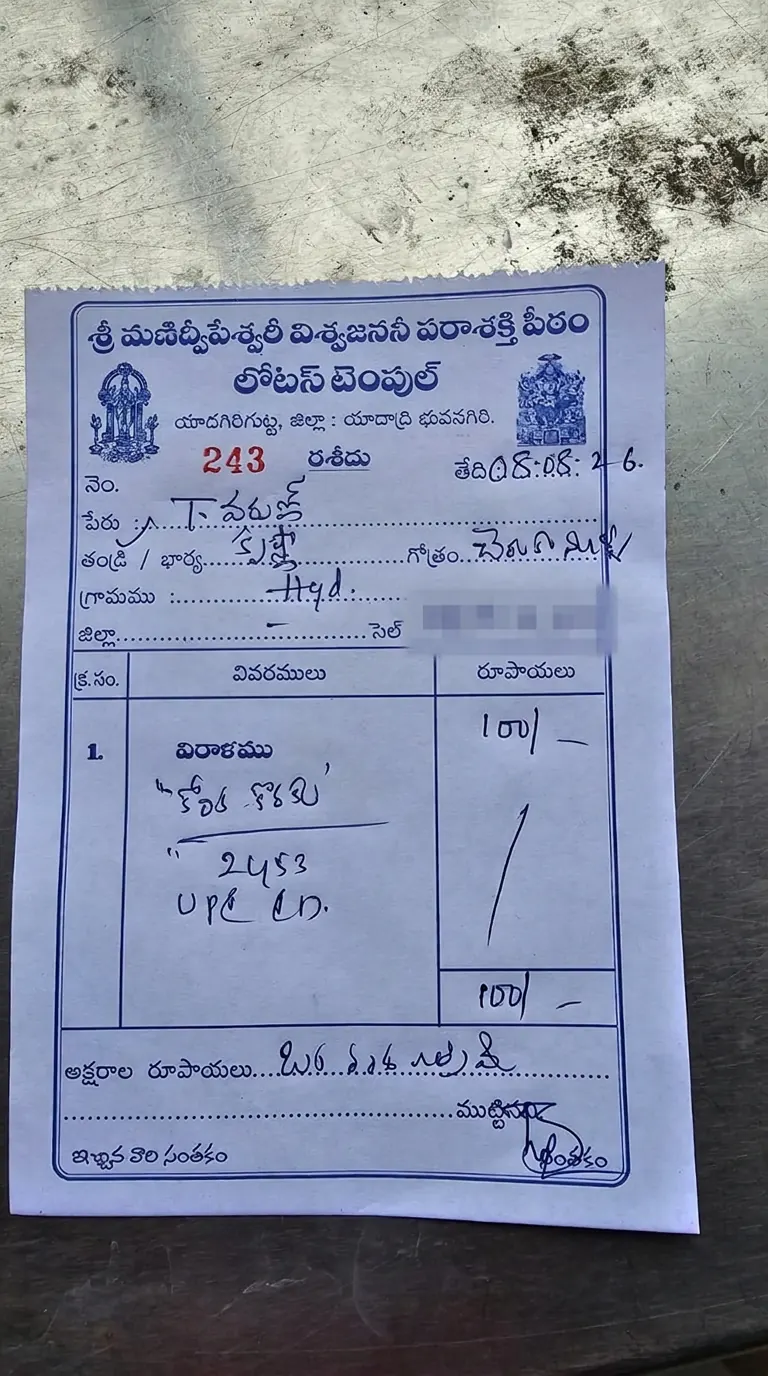 శ్రీ మణిద్వీపేశ్వరీ విశ్వజననీ పరాశక్తి పీఠం
లోటస్ టెంపుల్
యాదగిరిగుట్ట, జిల్లా : యాదాద్రి భువనగిరి.
నెం. 243 రశీదు తేది 08:08:26.
పేరు : T. వరుణ్
తండ్రి / భార్య గోత్రం
గ్రామము : Hyd.
జిల్లా - సెల్
క్ర.సం. వివరములు రూపాయలు
1. విరాళము 100/-
కొరకు
" 2453
UPI
100/-
అక్షరాల రూపాయలు
ఇచ్చిన వారి సంతకం సంతకం